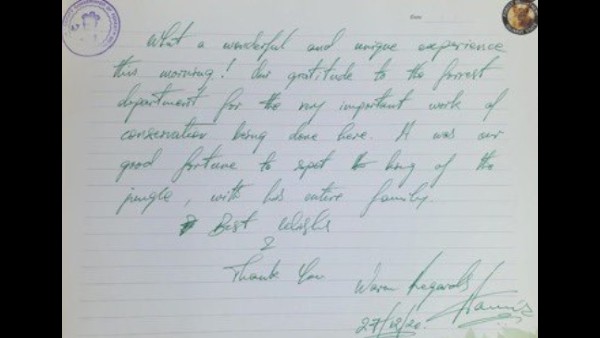 What a wonderful and unique experience
this morning! Our gratitude to the forrest
department for the very important work of
conservation being done here. It was our
good fortune to spot the king of the
jungle, with his entire family.
Best Wishes
&
Thank You
Warm Regards
27/12/20.